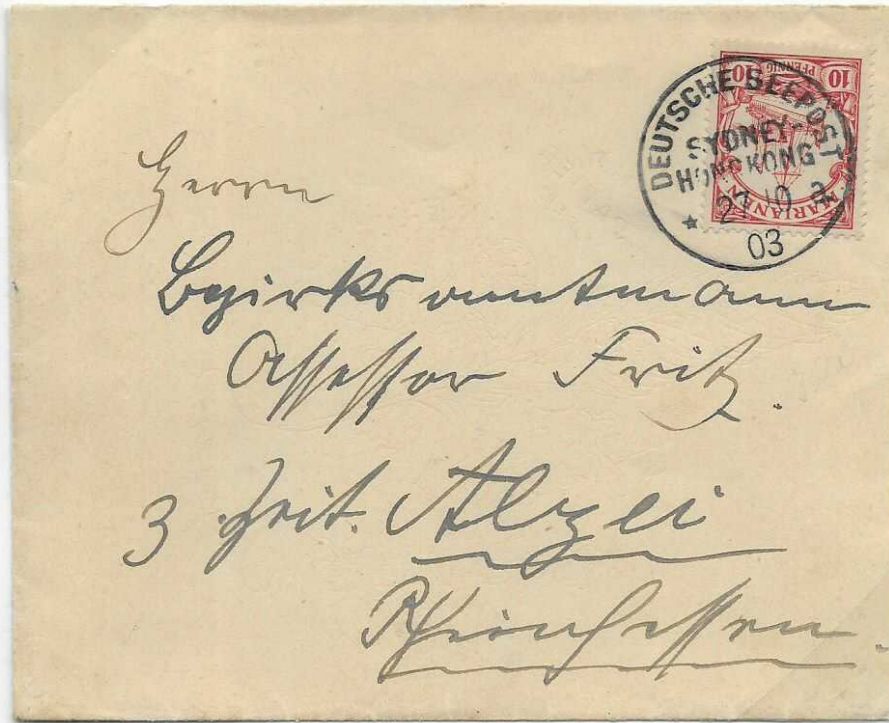 10 PFENNIG 10
MARIANEN
DEUTSCHE SEEPOST
SYDNEY-
HONGKONG
* 27 10
03
Herrn
Bezirksamtmann
Assessor Fritz.
z. Zeit. Alzei
Rheinhessen.